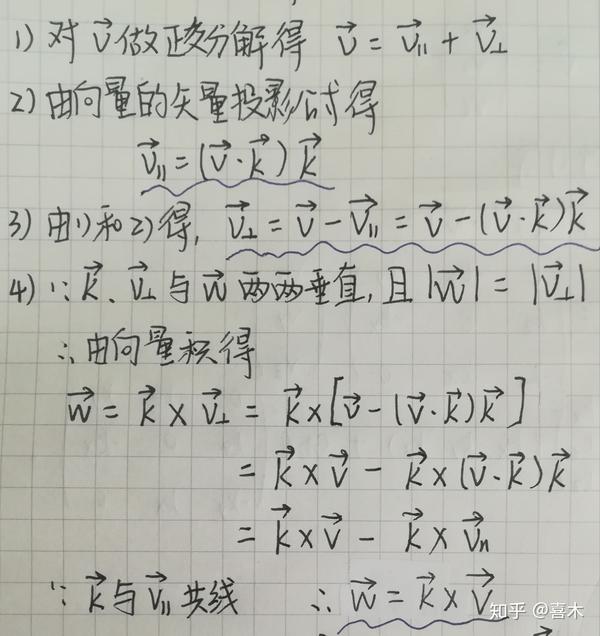 1) 对 v⃗ 做正交分解得 v⃗ = v⃗∥ + v⃗⊥
2) 由向量的矢量投影公式得
v⃗∥ = (v⃗·k⃗) k⃗
3) 由1)和2)得, v⃗⊥ = v⃗ − v⃗∥ = v⃗ − (v⃗·k⃗)k⃗
4) ∵ k⃗、v⃗⊥ 与 w⃗ 两两垂直, 且 |w⃗| = |v⃗⊥|
∴ 由向量积得
w⃗ = k⃗ × v⃗⊥ = k⃗ × [v⃗ − (v⃗·k⃗)k⃗]
= k⃗ × v⃗ − k⃗ × (v⃗·k⃗)k⃗
= k⃗ × v⃗ − k⃗ × v⃗∥
∵ k⃗ 与 v⃗∥ 共线 ∴ w⃗ = k⃗ × v⃗
知乎 @喜木